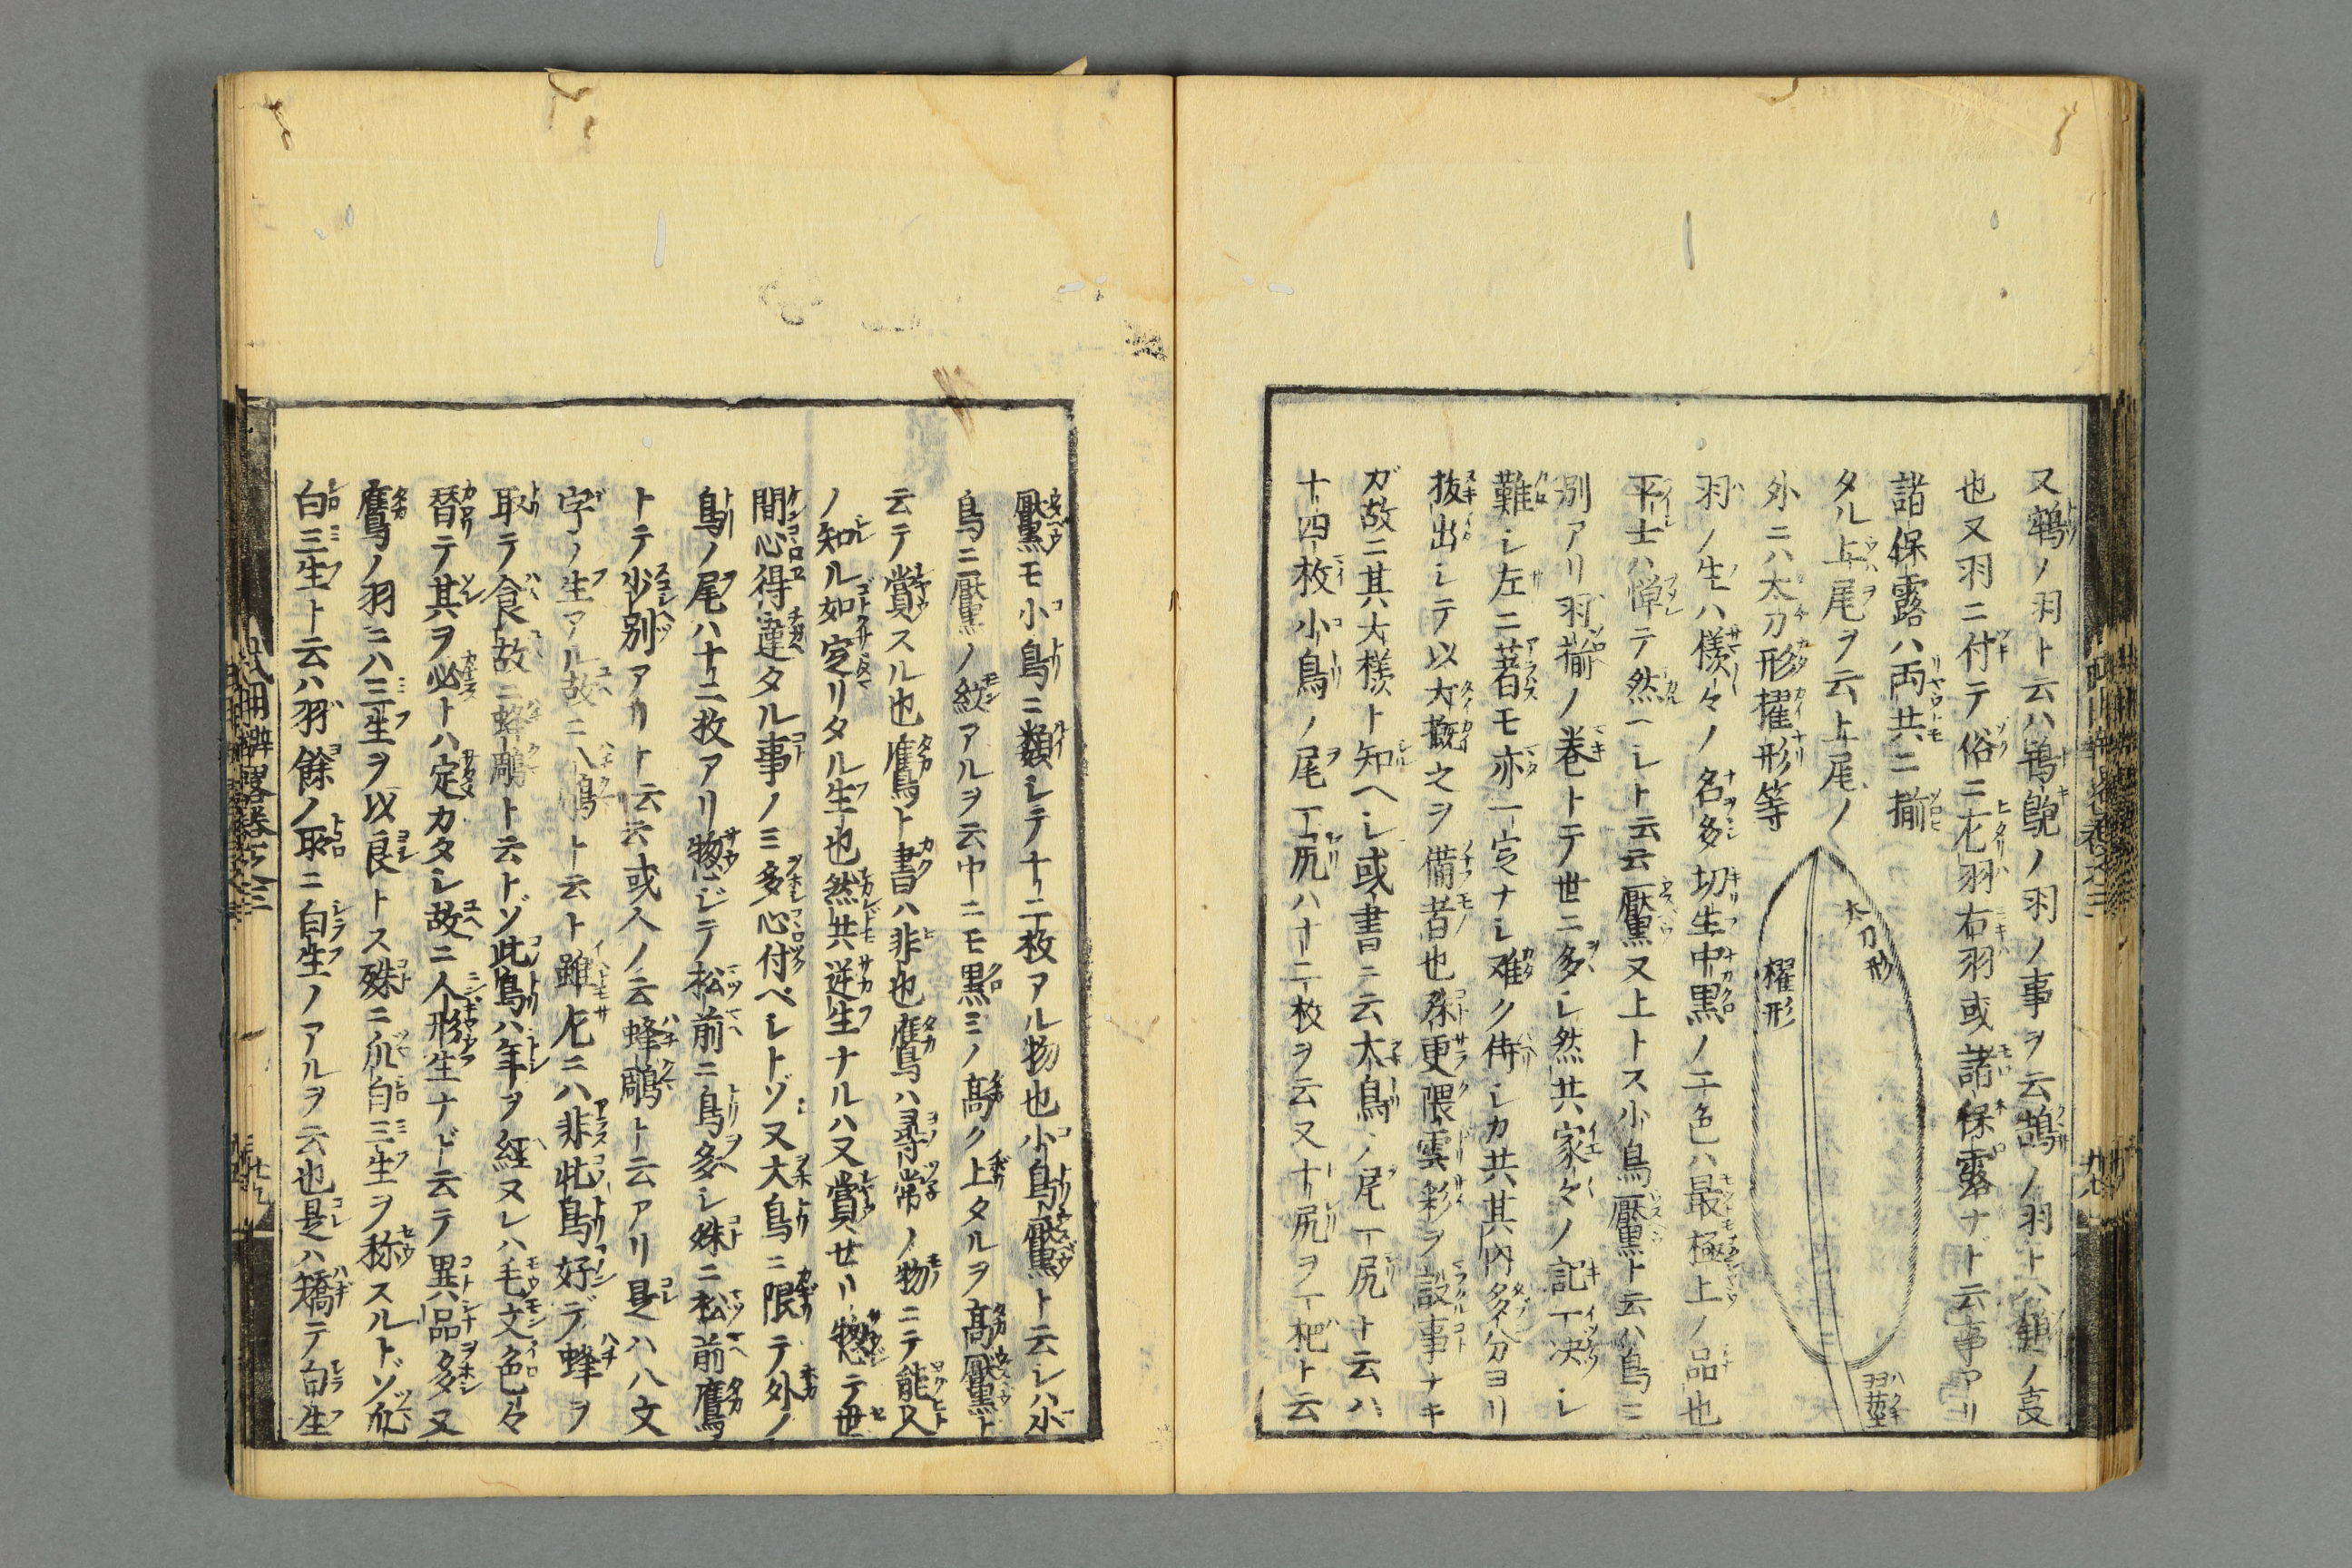 又鵇ノ羽ト云ハ鴇鳬ノ羽ノ事ヲ云鵠ノ羽トハ類ノ㕝
也又羽ニ付テ俗ニ左羽右羽或諸保露ナド云事アリ
諸保露ハ両共ニ揃
タル上尾ヲ云上尾ノ
外ニハ太刀形擢形等
太刀形
擢形
羽ノ生ハ様々ノ名多切生中黒ノ二色ハ最極上ノ品也
平士ハ憚テ然ベレト云云黶又上トス小鳥黶ト云ハ鳥ニ
別アリ羽揃ノ巻トテ世ニ多シ然共家々ノ記一决シ
難シ左ニ著モ亦一定ナレ难ク侍レカ共其内多分ヨリ
抜出シテ以大概之ヲ備者也殊更隈雲彩ヲ設事ナキ
ガ故ニ其大様ト知ヘシ或書ニ云大鳥ノ尾一尻ト云ハ
十四枚小鳥ノ尾一尻ハ十二枚ヲ云又十尻ヲ一杷ト云
黶モ小鳥ニ類シテ十二枚アル物也小鳥黶ト云レハ小
鳥ニ黶ノ紋アルヲ云中ニモ黒ミノ髙ク上タルヲ髙黶ト
云テ賞スル也鷹ト書ハ非也鷹ハ尋常ノ物ニテ能人
ノ知ル如定リタル生也然共逆生ナルハ又賞せリ惣テ世
間心得違タル事ノミ多心付ベレトゾ又大鳥ニ限テ外ノ
鳥ノ尾ハ十二枚アリ惣ジテ松前ニ鳥多シ殊ニ松前鷹
トテ少別アリト云云或人ノ云蜂鵰ト云アリ是ハ八文
字ノ生アル故ニ八鵰ト云ト雖左ニハ非此鳥好デ蜂ヲ
取テ食故ニ蜂鵰ト云トゾ此鳥ハ年ヲ經ヌレハ毛文色々
替テ其ヲ必トハ定カタシ故ニ人形生ナド云テ異品多又
鷹ノ羽ニハ三生ヲ以良トス殊ニ爪白三生ヲ称スルトゾ爪
白三生ト云ハ羽餘ノ取ニ白生ノアルヲ云也是ハ矯テ白生